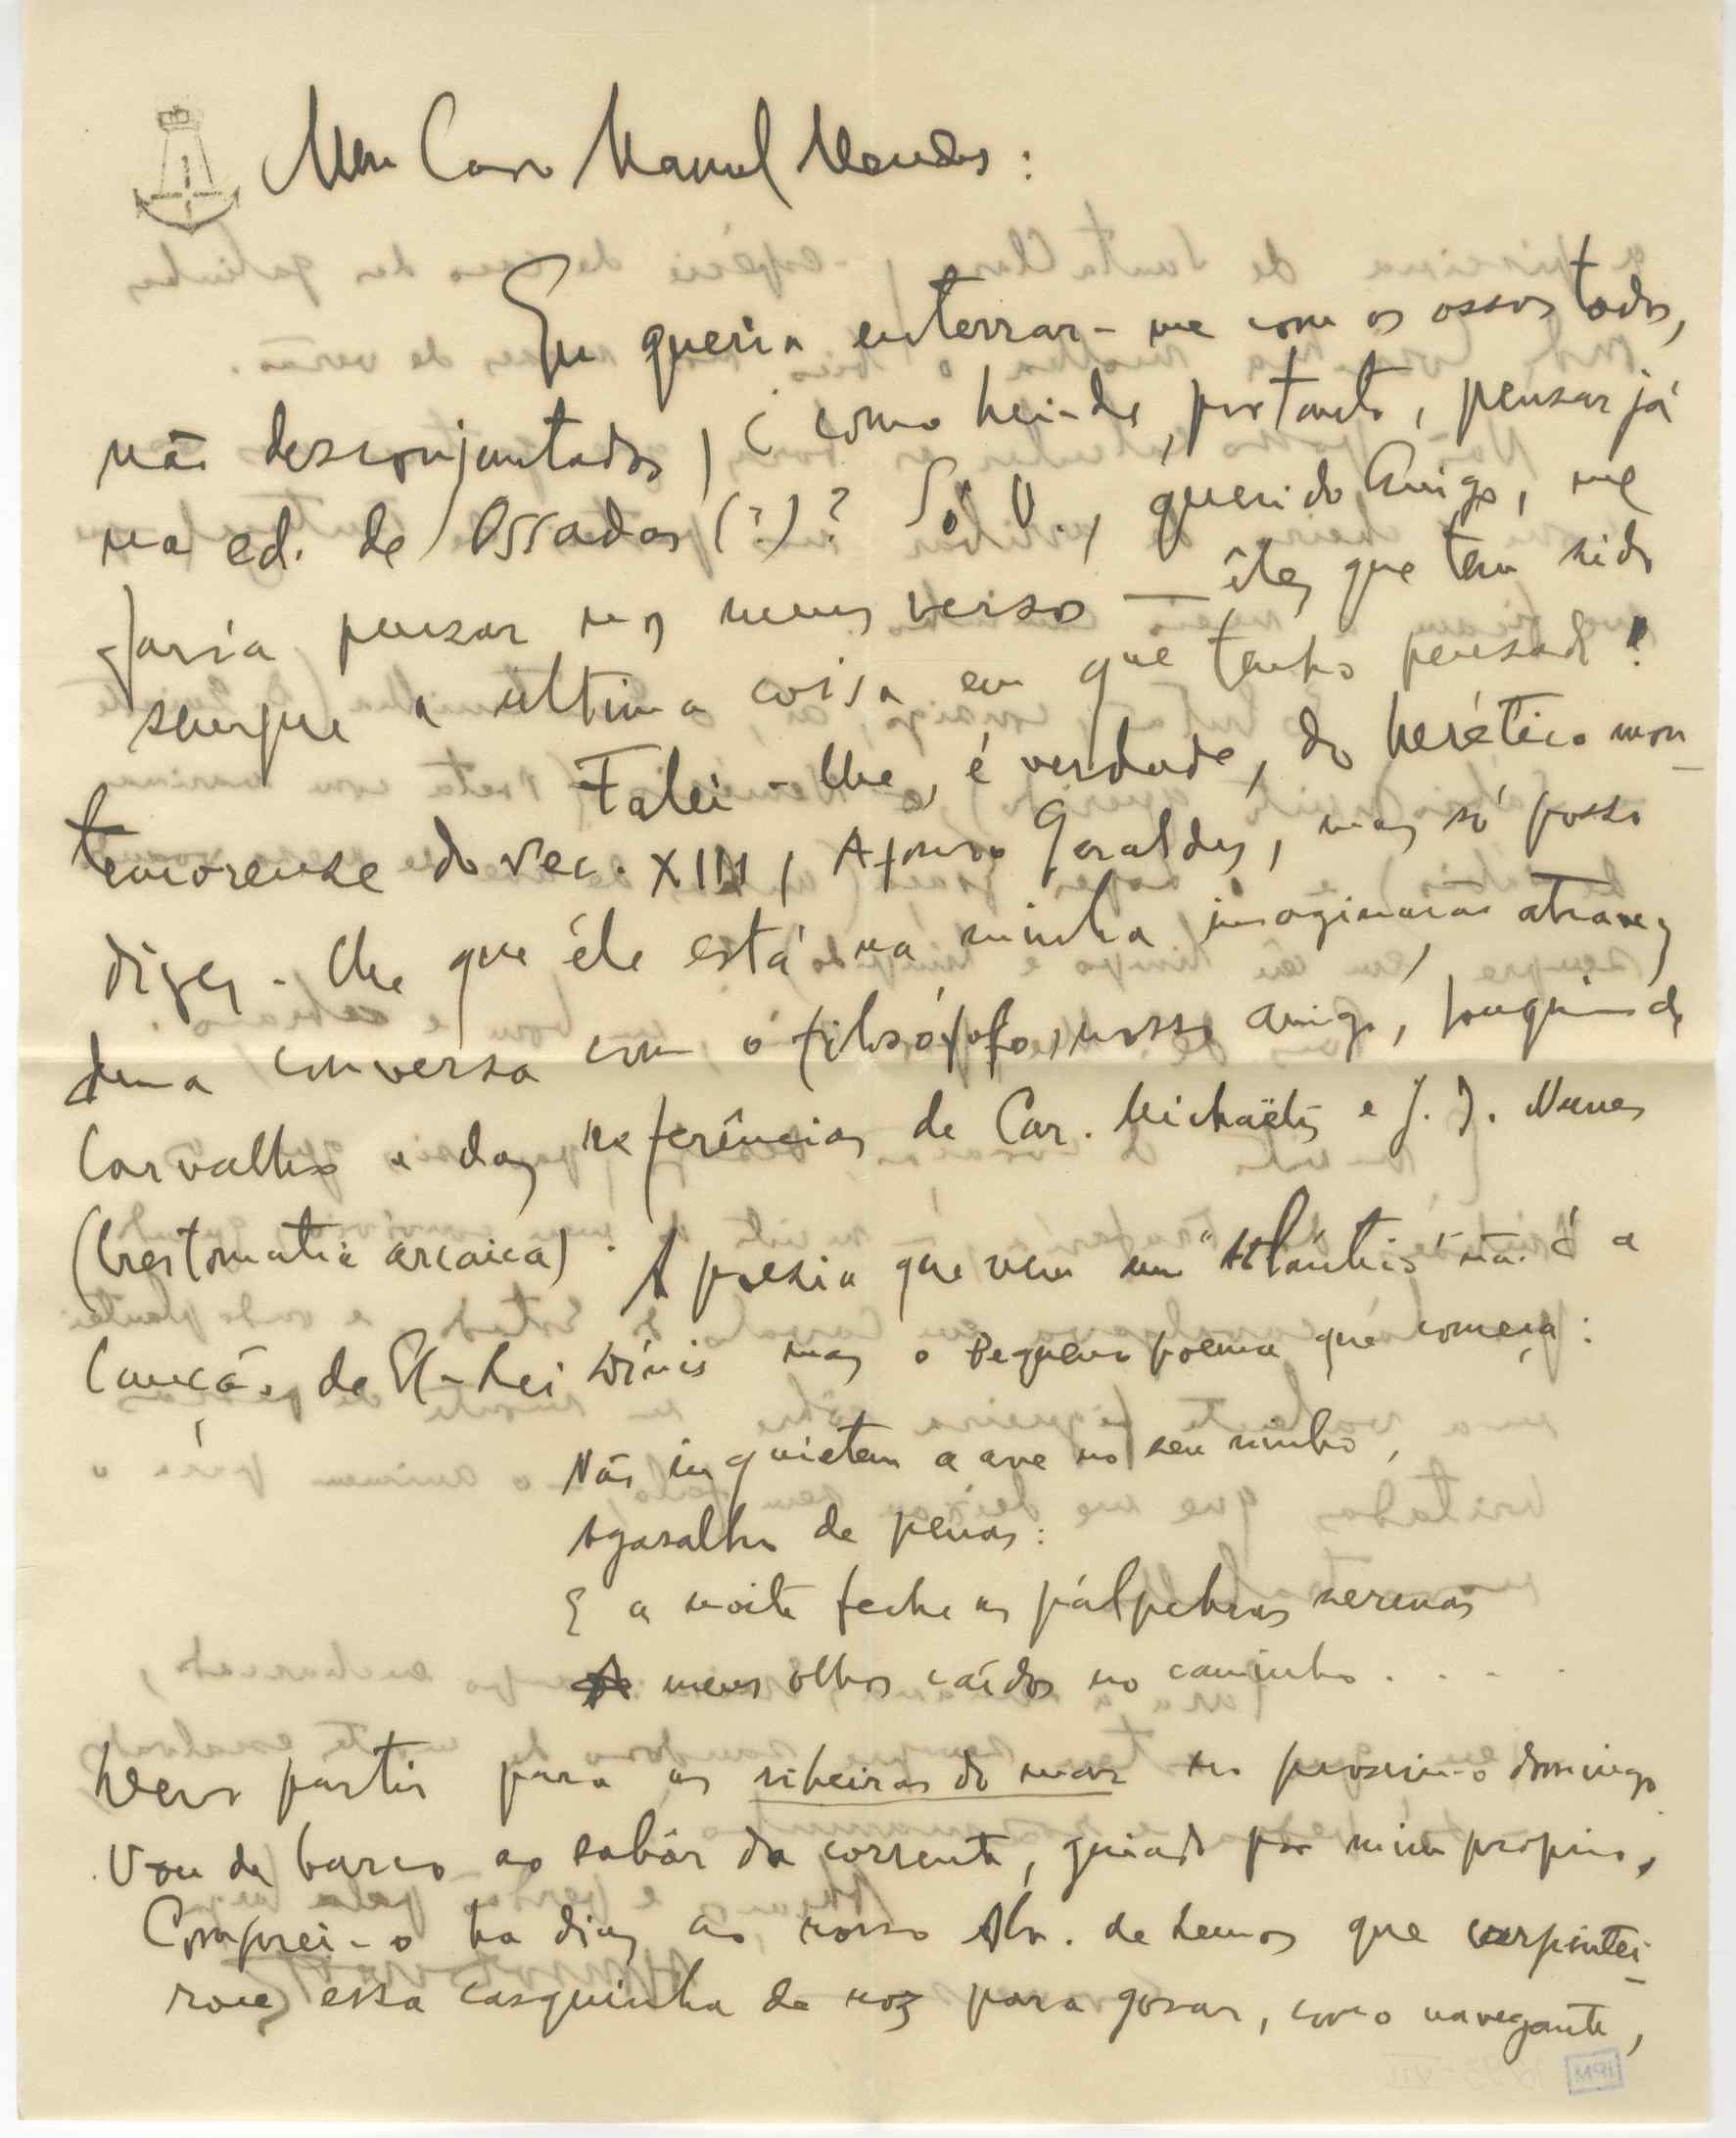 Meu Caro Manuel Mendes:
Eu queria enterrar-me com os ossos todos,
não desconjuntados, ¿como hei-de, portanto, pensar já
na ed. de Ossadas (?)? Só V., querido Amigo, me
faria pensar nos meus versos — êles que têm sido
sempre a ultima coisa em que tenho pensado!
Falei-lhe, é verdade, do herético mon-
temorense do sec. XIII, Afonso Geraldes, mas só posso
dizer-lhe que êle está na minha imaginação atravez
duma conversa com o filósofo, nosso amigo, Joaquim de
Carvalho e das referências de Car. Michaëlis e J. J. Nunes
(Crestomatia arcaica). A poesia que vem em "Atlântis" não é a
Canção de El-Rei Dinis mas o Pequeno poema que começa:
Não inquietem a ave no seu ninho,
Agasalho de penas:
E a noite feche as pálpebras serenas
A meus olhos caídos no caminho . . . .
Devo partir para as ribeiras do mar no proximo domingo
Vou de barco ao sabôr da corrente, guiado por mim proprio,
Comprei-o ha dias ao nosso Alv. de Lemos que carpintei-
rou essa casquinha de noz para gosar, como navegante,
MPI